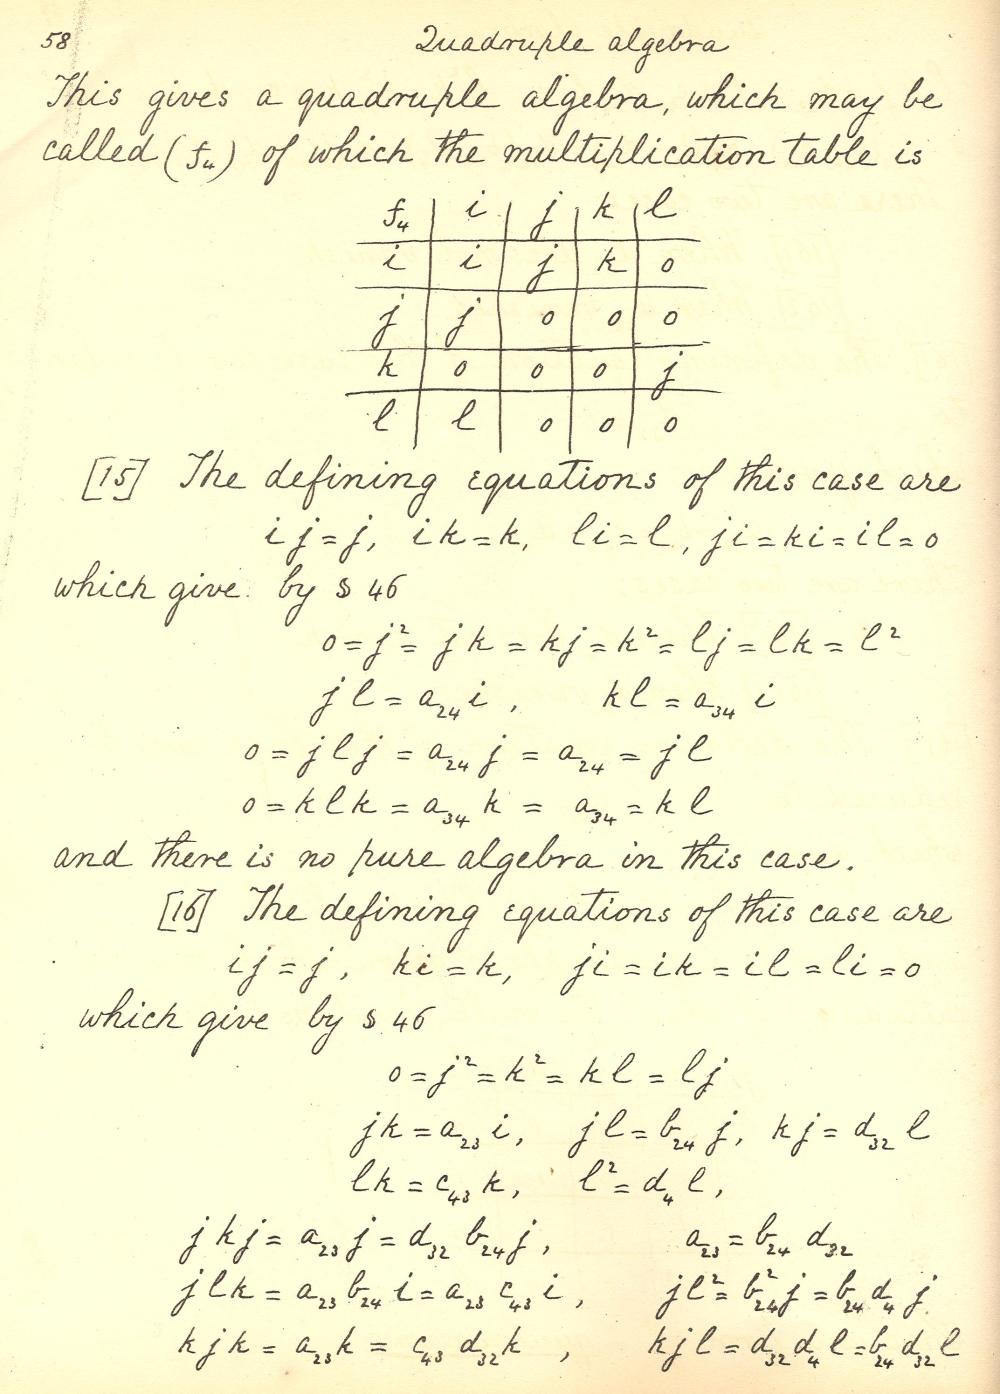 58 Quadruple algebra
This gives a quadruple algebra, which may be
called (f₄) of which the multiplication table is
f₄ | i | j | k | l
i | i | j | k | o
j | j | o | o | o
k | o | o | o | j
l | l | o | o | o
[15] The defining equations of this case are
ij = j, ik = k, li = l, ji = ki = il = o
which give by § 46
o = j² = jk = kj = k² = lj = lk = l²
jl = a₂₄ i, kl = a₃₄ i
o = jlj = a₂₄ j = a₂₄ = jl
o = klk = a₃₄ k = a₃₄ = kl
and there is no pure algebra in this case.
[16] The defining equations of this case are
ij = j, ki = k, ji = ik = il = li = o
which give by § 46
o = j² = k² = kl = lj
jk = a₂₃ i, jl = b₂₄ j, kj = d₃₂ l
lk = c₄₃ k, l² = d₄ l,
jkj = a₂₃ j = d₃₂ b₂₄ j, a₂₃ = b₂₄ d₃₂
jlk = a₂₃ b₂₄ i = a₂₃ c₄₃ i, jl² = b²₂₄ j = b₂₄ d₄ j
kjk = a₂₃ k = c₄₃ d₃₂ k, kjl = d₃₂ d₄ l = b₂₄ d₃₂ l